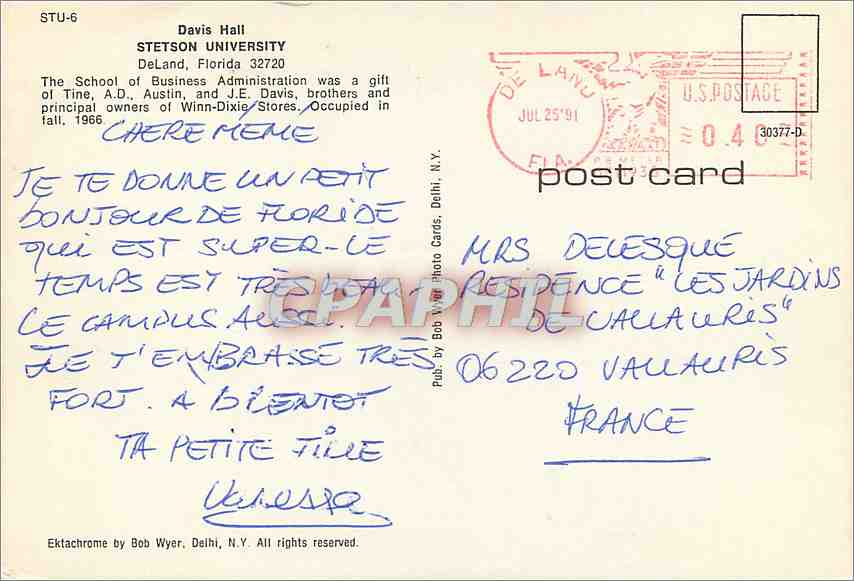 STU-6
Davis Hall
STETSON UNIVERSITY
DeLand, Florida 32720
The School of Business Administration was a gift
of Tine, A.D., Austin, and J.E. Davis, brothers and
principal owners of Winn-Dixie Stores. Occupied in
fall, 1966.
CHERE MÉMÉ
JE TE DONNE UN PETIT
BONJOUR DE FLORIDE
QUI EST SUPER-LE
TEMPS EST TRÈS BEAU -
LE CAMPUS AUSSI.
JE T'EMBRASSE TRÈS
FORT. A BIENTOT
TA PETITE FILLE
Vanessa
Ektachrome by Bob Wyer, Delhi, N.Y. All rights reserved.
Pub. by Bob Wyer Photo Cards, Delhi, N.Y.
DE LAND
JUL 25'91
FLA.
U.S.POSTAGE
0.40
P.B.METER
30377-D
post card
MRS DELESQUE
RESIDENCE "LES JARDINS
DE VALLAURIS"
06220 VALLAURIS
FRANCE
CPAPHIL